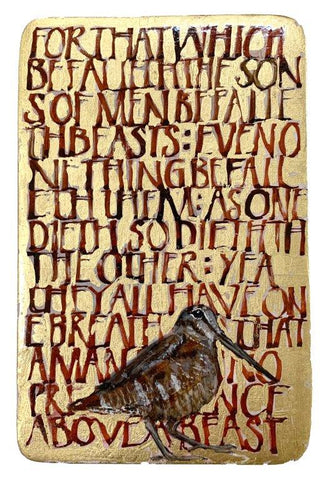 FOR THAT WHICH
BEFALLETH THE SON
S OF MEN BEFALLE
TH BEASTS : EVEN O
NE THING BEFALL
ETH THEM : AS ONE
DIETH, SO DIETH
THE OTHER : YEA
THEY ALL HAVE ON
E BREATH THAT
A MAN NO
PRE NCE
ABOVE A BEAST